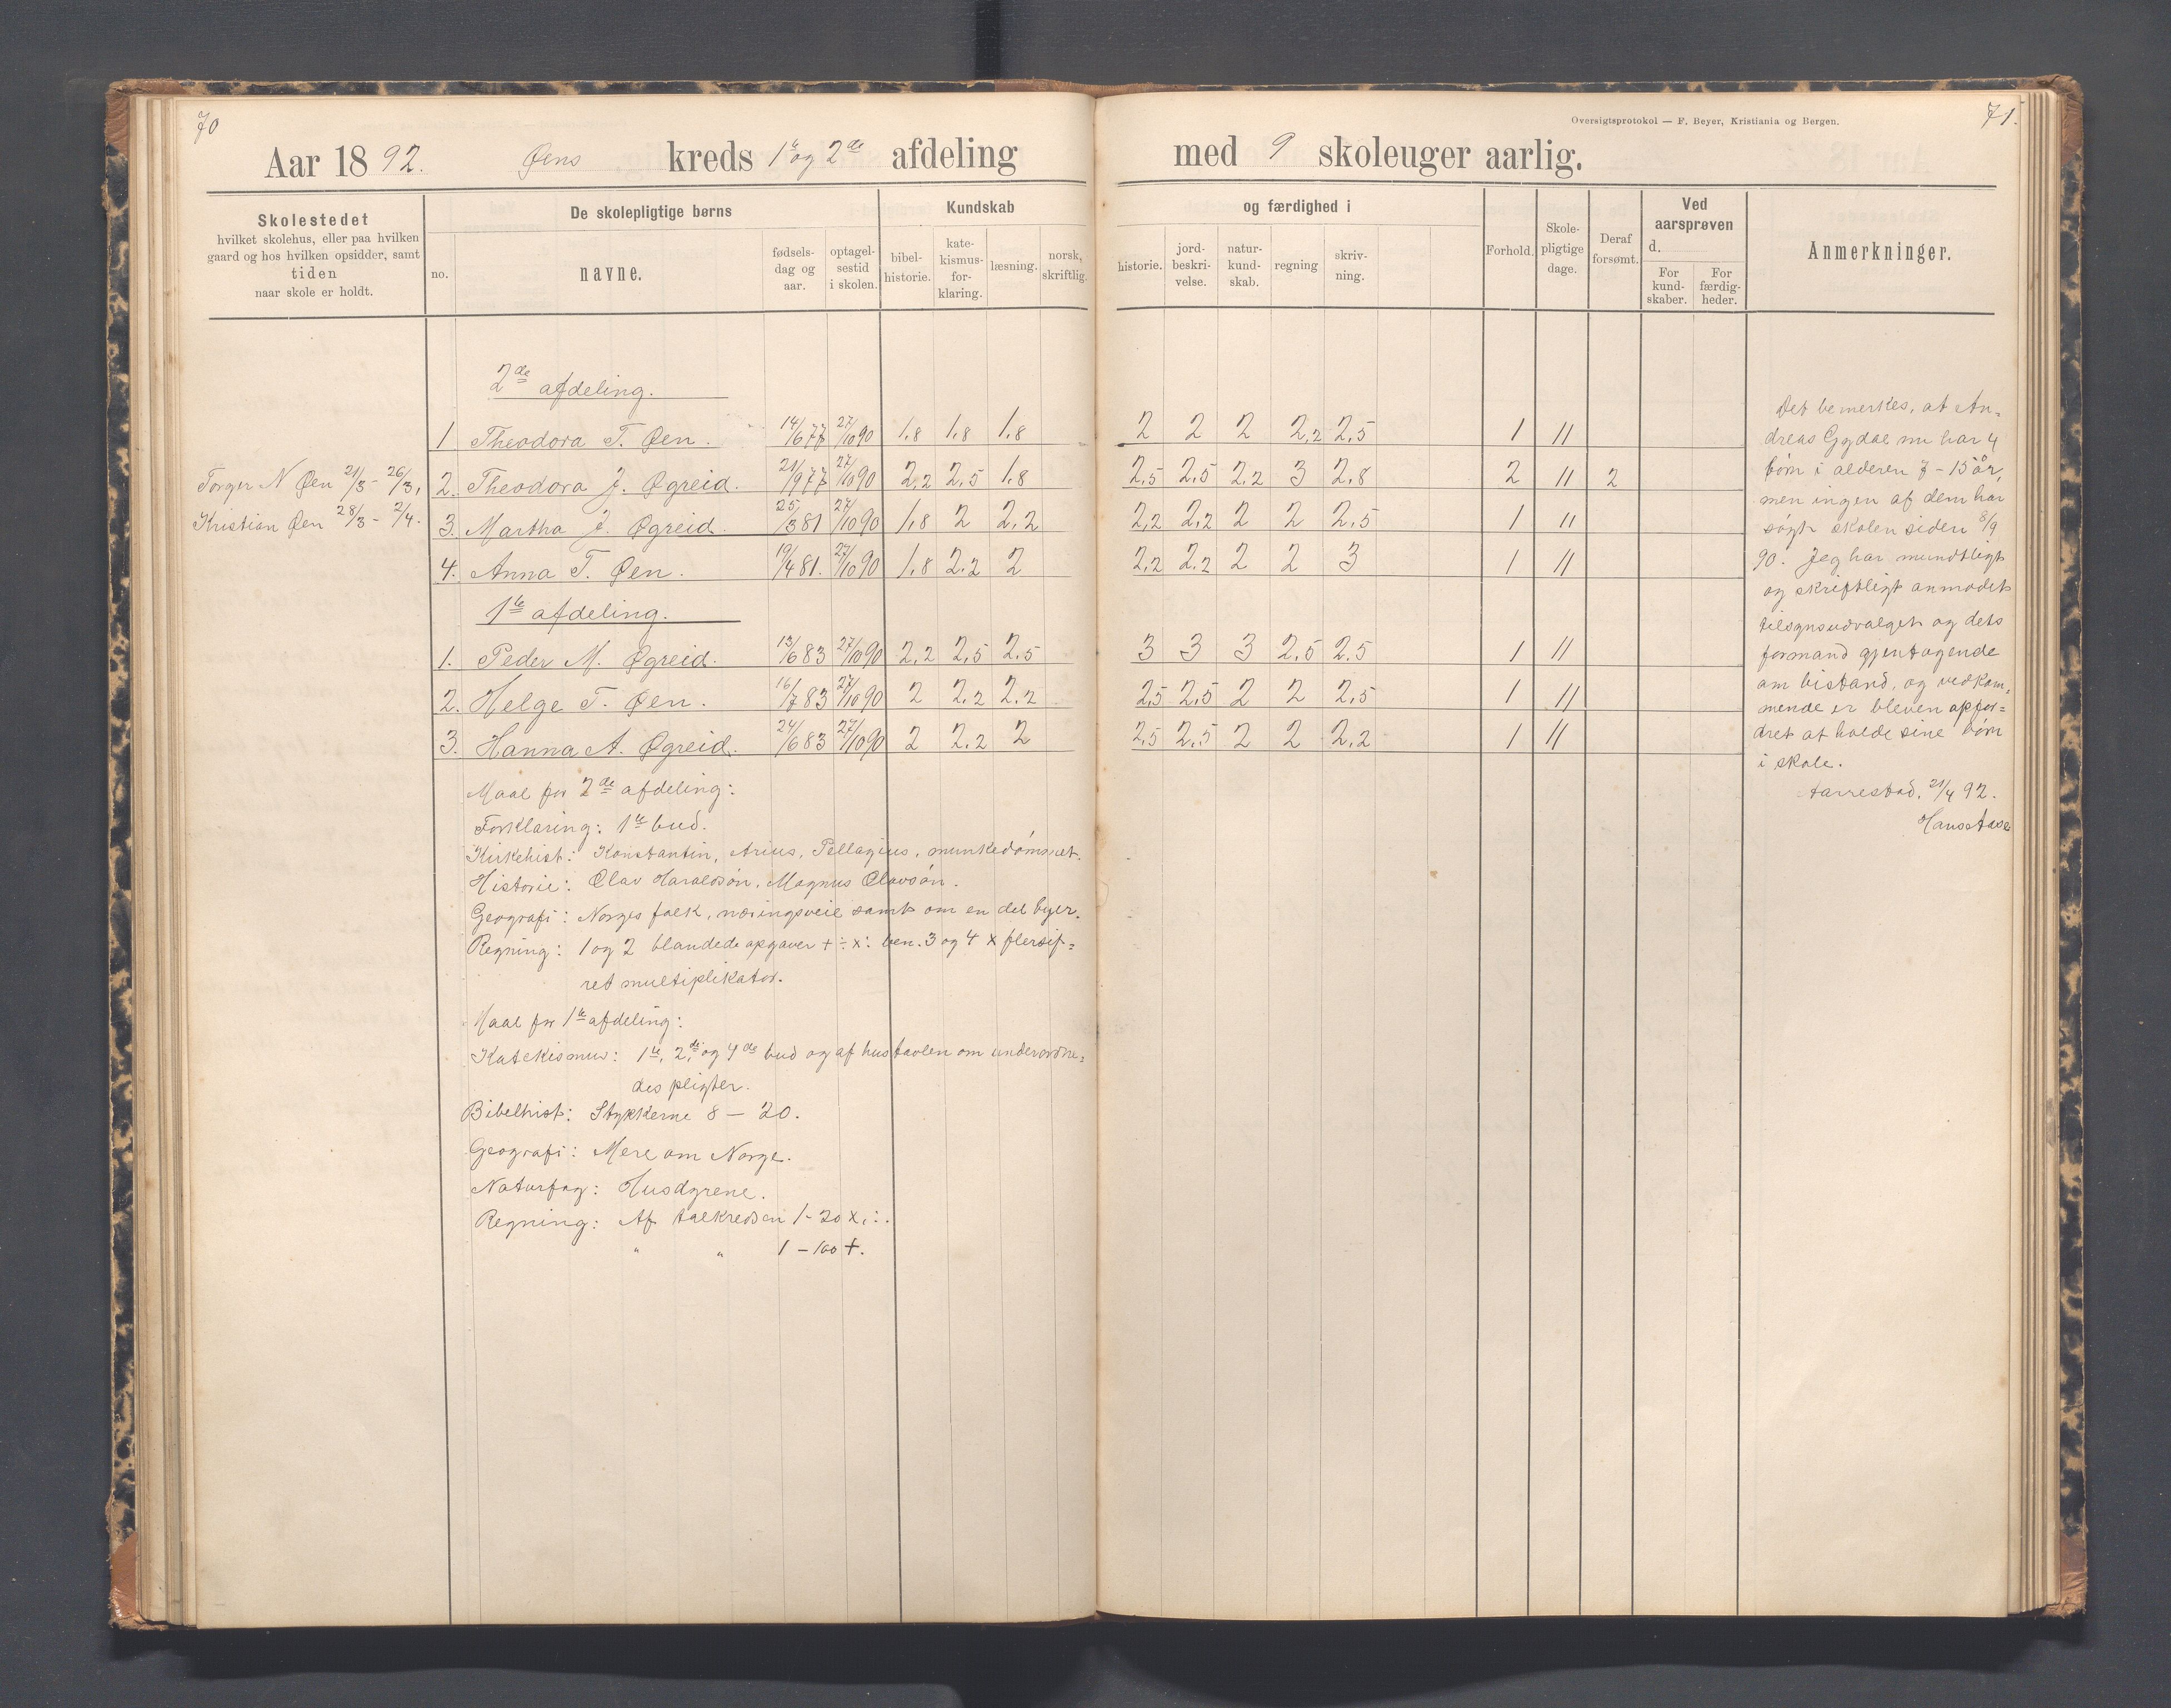 70
71.
Oversigtsprotokol — F. Beyer, Kristiania og Bergen.
Aar 1892. Øens kreds 1ste og 2den afdeling med 9 skoleuger aarlig.
Skolestedet
hvilket skolehus, eller paa hvilken
gaard og hos hvilken opsidder, samt
tiden
naar skole er holdt.
De skolepligtige børns
no.
navne.
fødsels-
dag og
aar.
optagel-
sestid
i skolen.
Kundskab og færdighed i
bibel-
historie.
kate-
kismus-
for-
klaring.
læsning.
norsk,
skriftlig.
historie.
jord-
beskri-
velse.
natur-
kund-
skab.
regning
skriv-
ning.
Forhold.
Skole-
pligtige
dage.
Deraf
forsømt.
Ved
aarsprøven
d.
For
kund-
skaber.
For
færdig-
heder.
Anmerkninger.
2de afdeling.
1 Theodora T. Øen. 14/6 77 27/10 90 1.8 1.8 1.8 2 2 2 2,2 2,5 1 11
Torger N Øen 21/3 - 26/3,
2. Theodora J. Øgreid. 21/9 77 27/10 90 2,2 2,5 1.8 2,5 2,5 2,2 3 2,8 2 11 2
Kristian Øen 28/3 - 2/4.
3. Martha J. Øgreid. 25/3 81 27/10 90 1,8 2 2,2 2,2 2,2 2 2 2,5 1 11
4. Anna T. Øen. 19/4 81. 27/10 90 1,8 2,2 2 2,2 2,2 2 2 3 1 11
1te afdeling.
1. Peder M. Øgreid. 13/6 83 27/10 90 2,2 2,5 2,5 3 3 3 2,5 2,5 1 11
2. Helge T. Øen. 16/7 83 27/10 90 2 2,2 2,2 2,5 2,5 2 2 2,5 1 11
3. Hanna A. Øgreid. 24/6 83 27/10 90 2 2,2 2 2,5 2,5 2 2 2,2 1 11
Maal for 2de afdeling:
Forklaring: 1te bud.
Kirkehist: Konstantin, Arius, Pellagius, munkedømmet.
Historie: Olav Haraldsøn, Magnus Olavsøn.
Geografi: Norges folk, næringsveie samt om en del byer.
Regning: 1 og 2 blandede opgaver + ÷ x : ben. 3 og 4 x flersif=
ret multiplikator.
Maal for 1te afdeling:
Katekismus: 1te, 2de og 4de bud og af hustavlen om underordne=
des pligter.
Bibelhist: Stykkerne 8 — 20.
Geografi: Mere om Norge.
Naturfag: Husdyrene.
Regning: Af talkredsen 1 - 20 x, :.
" " 1 - 100 +.
Det bemerkes, at An=
dreas Gydal nu har 4
børn i alderen 7 - 15 år,
men ingen af dem har
søgt skolen siden 8/9
90. Jeg har mundtligt
og skriftligt anmodet
tilsynsudvalget og dets
formand gjentagende
om bistand, og vedkom=
mende er bleven opfor=
dret at holde sine børn
i skole.
Aarrestad, 21/4 92.
Hans Aase